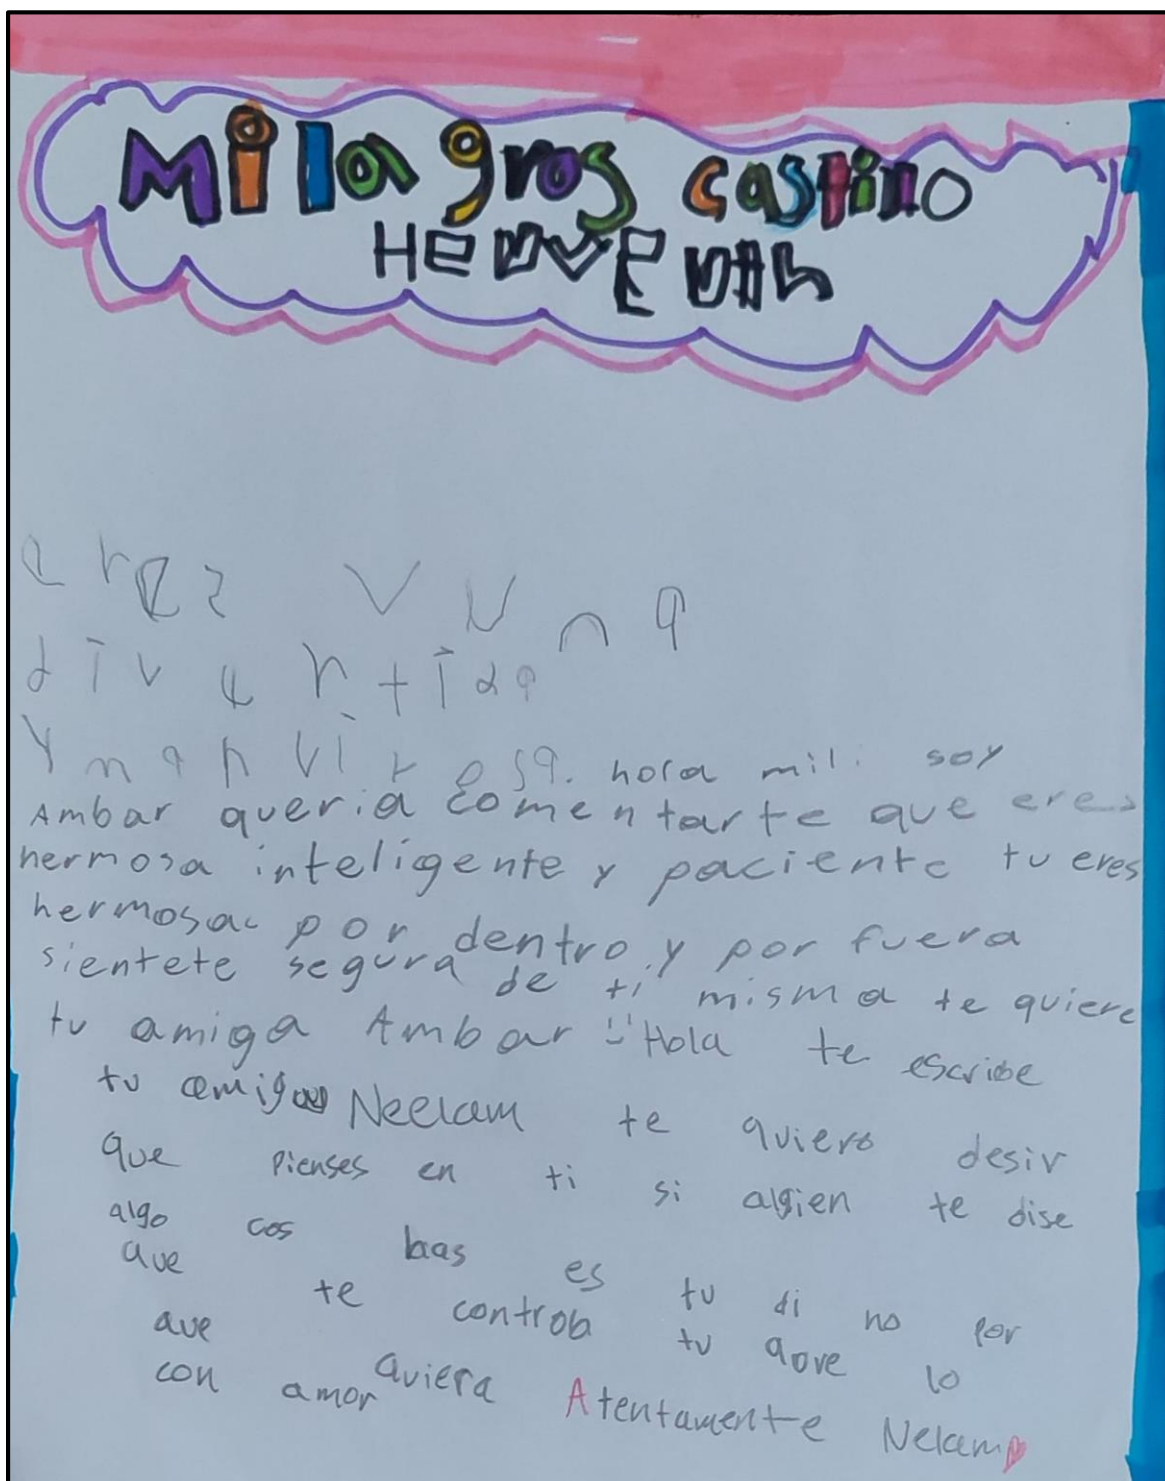 Milagros castillo
erez vuna
divertida
y mahvirosa. hola mili soy
Ambar queria comentarte que eres
hermosa inteligente y paciente tu eres
hermosa por dentro y por fuera
sientete segura de ti misma te quiere
tu amiga Ambar Hola te escribe
tu amiga Neelam te quiero desir
que pienses en ti si algien te dise
algo cos es tu di no por
que te controla tu lo
que quiera Atentamente Nelam
con amor